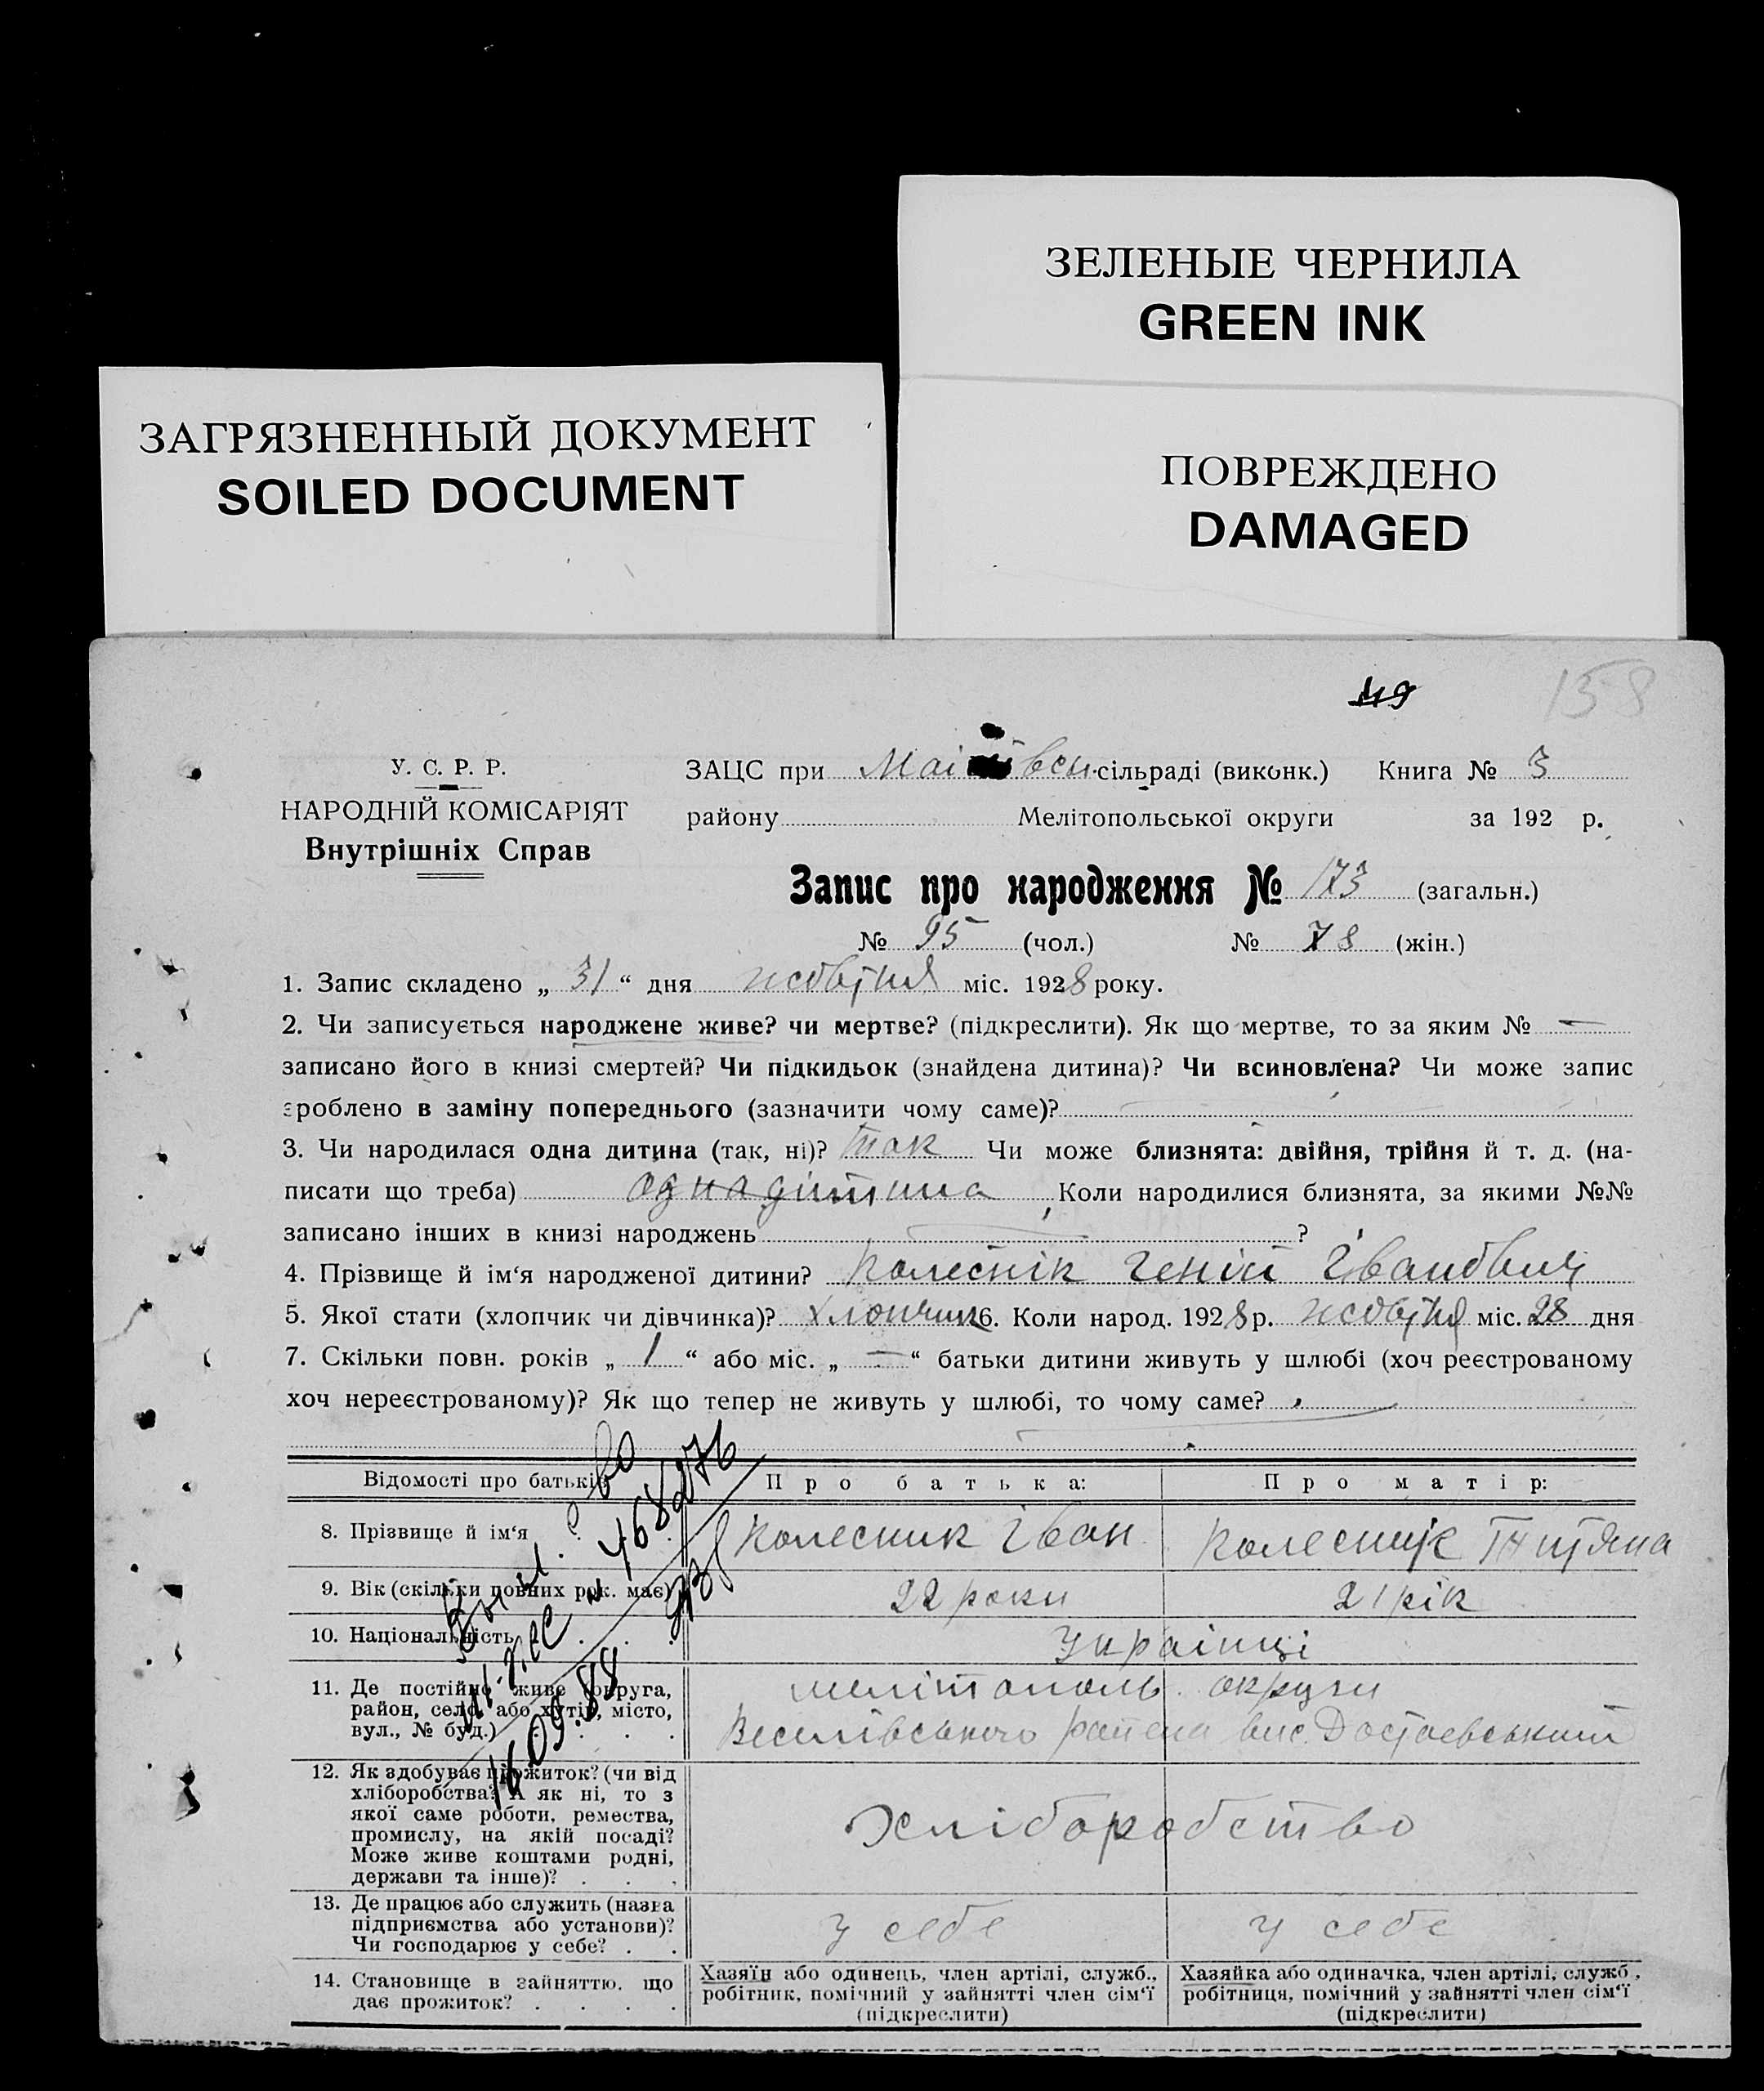 ЗЕЛЕНЫЕ ЧЕРНИЛА
GREEN INK
ЗАГРЯЗНЕННЫЙ ДОКУМЕНТ
SOILED DOCUMENT
ПОВРЕЖДЕНО
DAMAGED
119 158
У. С. Р. Р.
НАРОДНІЙ КОМІСАРІЯТ
Внутрішніх Справ
ЗАЦС при сільраді (виконк.) Книга № 3
району Мелітопольської округи за 192 р.
Запис про народження № 173 (загальн.)
№ 95 (чол.) № 78 (жін.)
1. Запис складено „ 31 “ дня жовтня міс. 1928 року.
2. Чи записується народжене живе? чи мертве? (підкреслити). Як що мертве, то за яким № —
записано його в книзі смертей? Чи підкидьок (знайдена дитина)? Чи всиновлена? Чи може запис
зроблено в заміну попереднього (зазначити чому саме)?
3. Чи народилася одна дитина (так, ні)? так Чи може близнята: двійня, трійня й т. д. (на-
писати що треба) одна дитина, Коли народилися близнята, за якими №№
записано інших в книзі народжень ?
4. Прізвище й ім‘я народженої дитини? Колеснік Геній Іванович
5. Якої стати (хлопчик чи дівчинка)? хлопчик 6. Коли народ. 1928 р. жовтня міс. 28 дня
7. Скільки повн. років „ 1 “ або міс. „ — “ батьки дитини живуть у шлюбі (хоч реєстрованому
хоч нереєстрованому)? Як що тепер не живуть у шлюбі, то чому саме?
Відомості про батьків Про батька: Про матір:
8. Прізвище й ім‘я Колесник Іван Колесник
9. Вік (скільки повних рок. має) 22 роки 21 рік
10. Національність Українці
11. Де постійно живе (округа,
район, село або хутір, місто,
вул., № буд.)
мелітополь. округи
Веселівського района вис. Достоевський
12. Як здобуває прожиток? (чи від
хліборобства? А як ні, то з
якої саме роботи, ремества,
промислу, на якій посаді?
Може живе коштами родні,
держави та інше)?
Хліборобство
13. Де працює або служить (назва
підприємства або установи)?
Чи господарює у себе?
у себе у себе
14. Становище в зайняттю, що
дає прожиток?
Хазяїн або одинець, член артілі, служб.,
робітник, помічний у зайнятті член сім‘ї
(підкреслити)
Хазяйка або одиначка, член артілі, служб.,
робітниця, помічний у зайнятті член сім‘ї
(підкреслити)
16.09.88